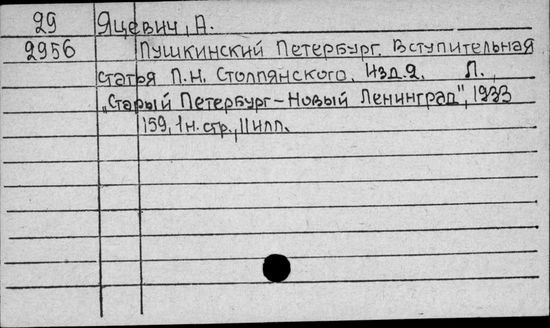 29 Яцевич, А.
2956 Пушкинский Петербург. Вступительная
статья П.Н. Столпянского. Изд.2. Л.,
„Старый Петербург-Новый Ленинград", 1933
159, 1н. стр., 11 илл.